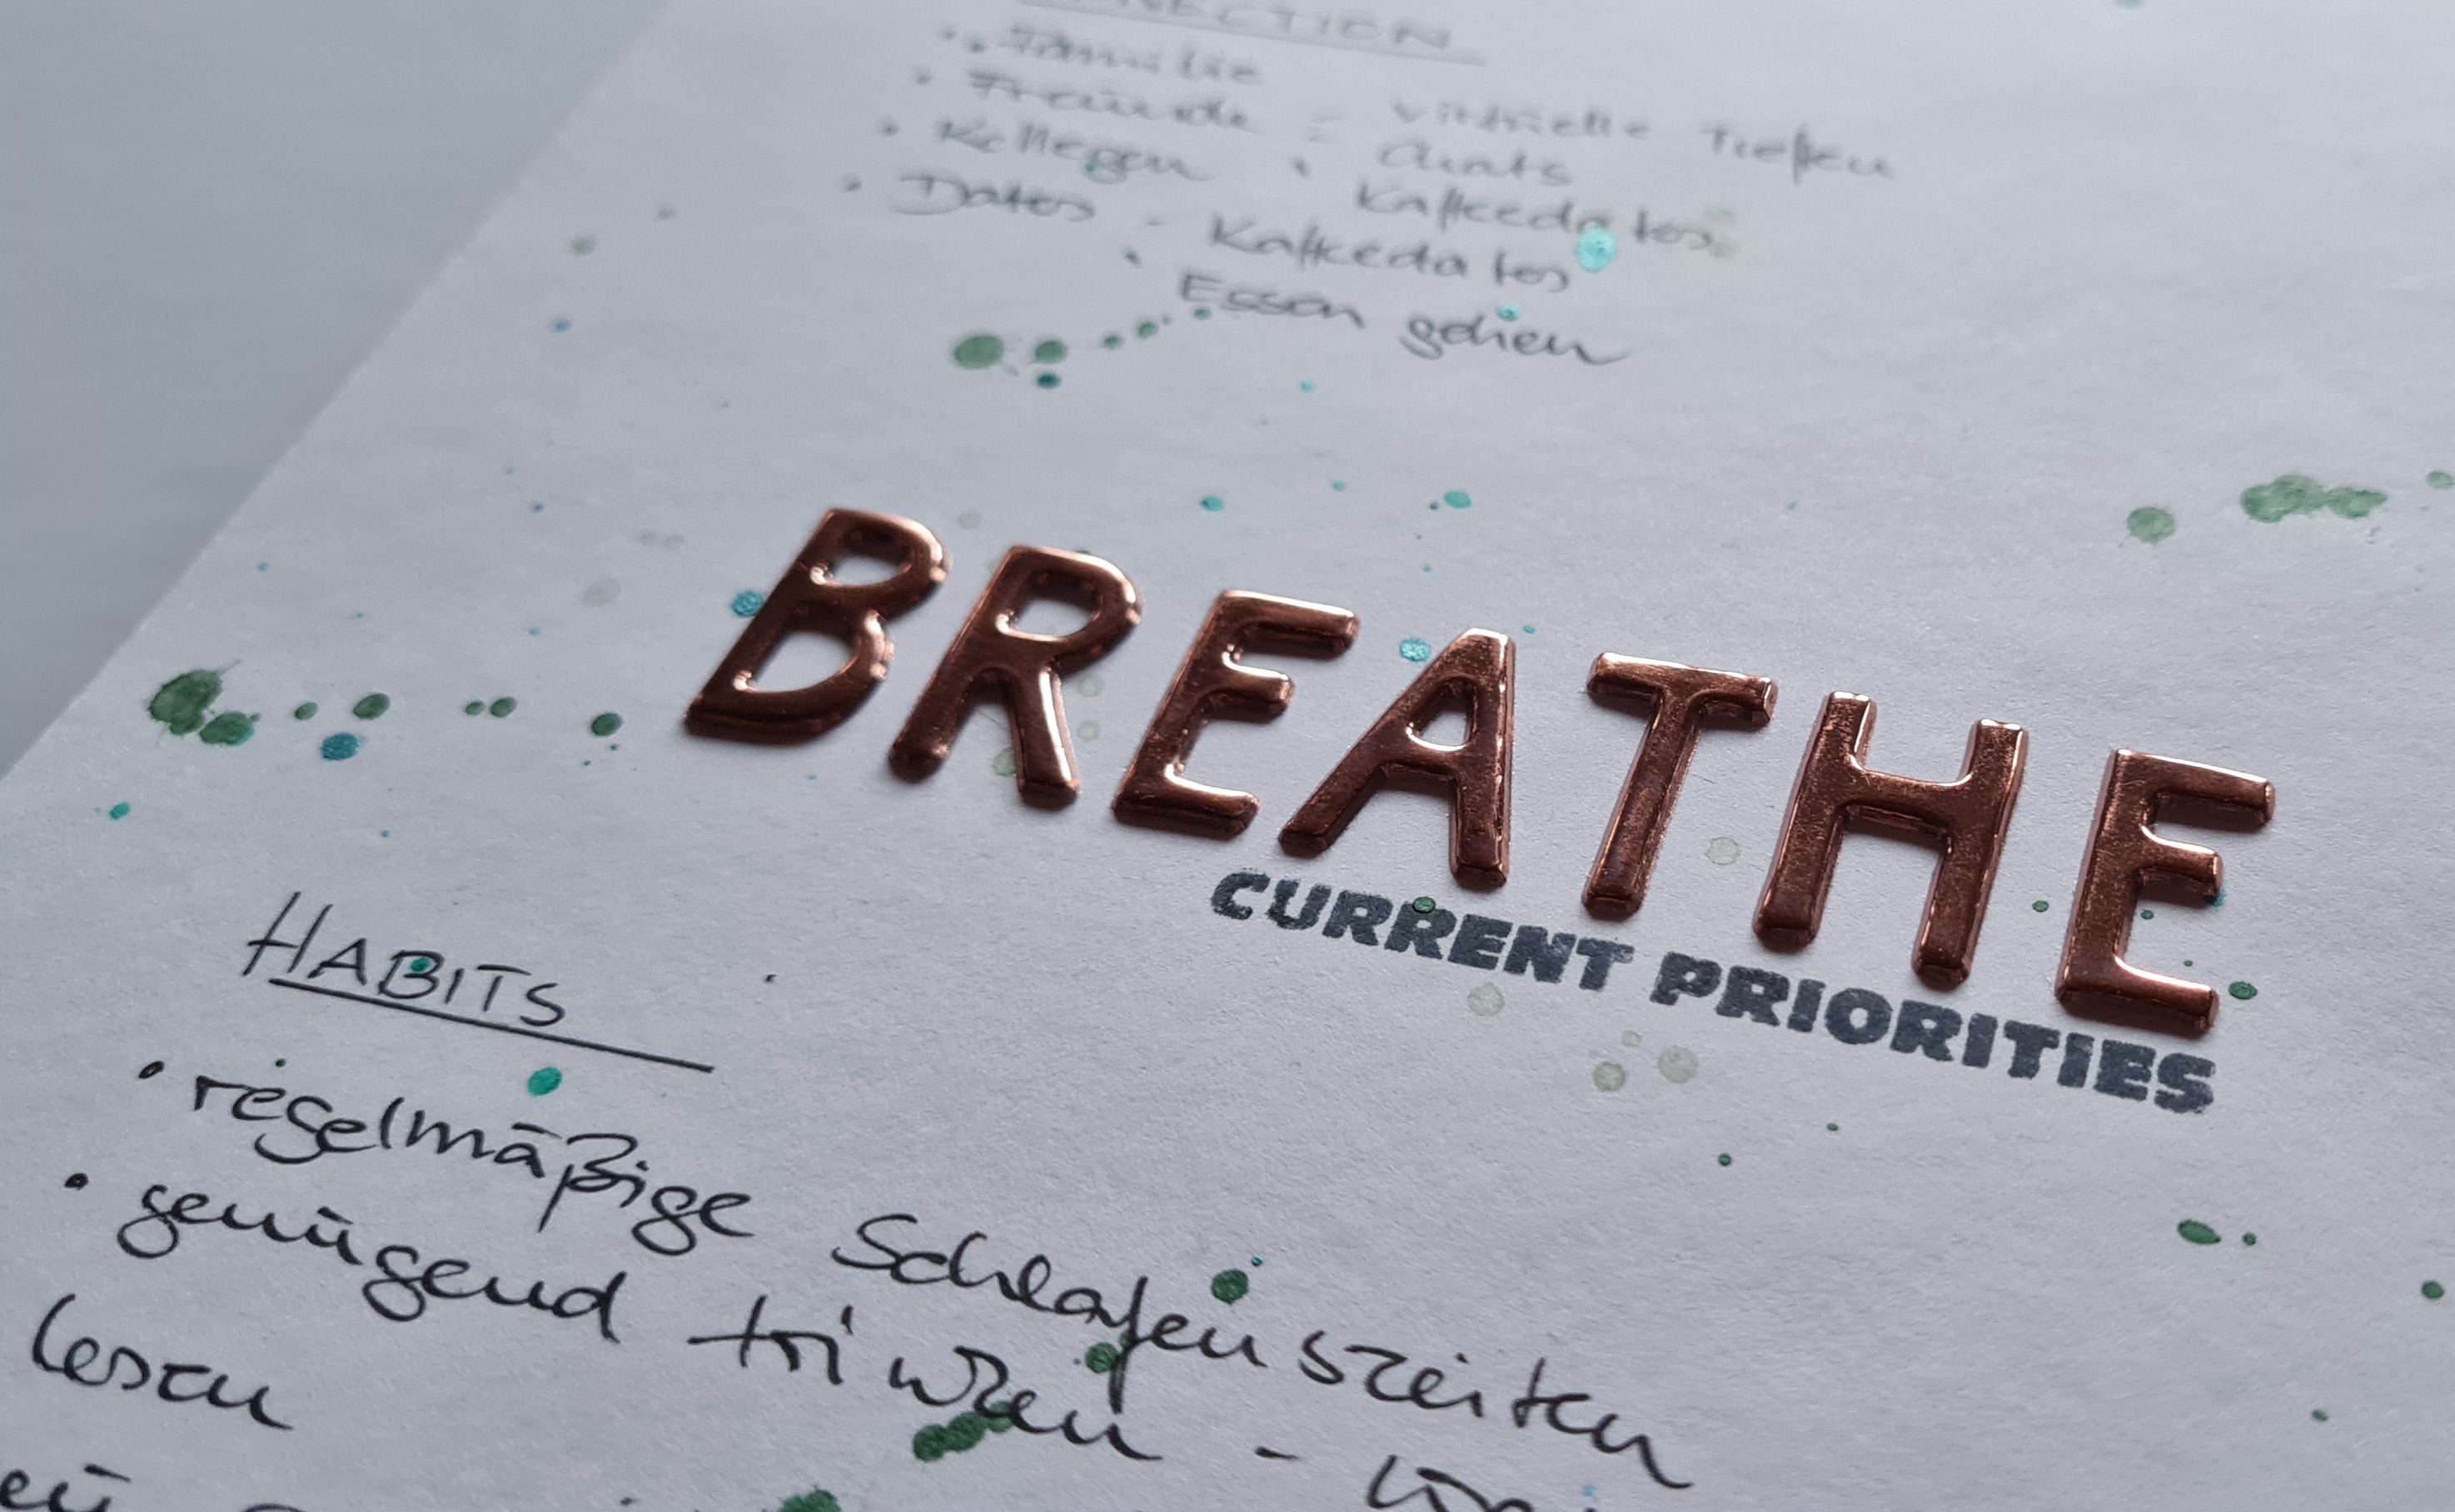 • Familie
• Freunde - virtuelle Treffen
• Kollegen • Chats
Kaffeedates
• Dates - Kaffedates
• Essen gehen
BREATHE
CURRENT PRIORITIES
HABITS
• regelmäßige Schlafenszeiten
• genügend trinken -
lesen